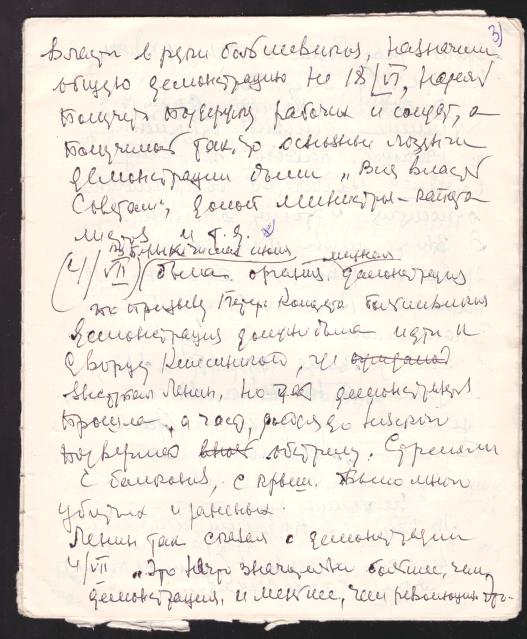 3)
власти в руки большевиков, назначили
общую демонстрацию на 18/VI, надеясь
получить поддержку рабочих и солдат, а
получилось так, что основные лозунги
демонстрации были „Вся власть
Советам", долой министры-капита
листов и т.д.
в первых числах июля мирная
(4/VII) была организ демонстрация
по призыву Петрогр Комитета большевиков
Демонстрация должна была идти к
дворцу Кшесинской, где
выступал Ленин, но демонстрация
прошла, а часть, дойдя до Невского
подверглась обстрелу. Стреляли
с балконов, с крыш. Было много
убитых и раненых.
Ленин так сказал о демонстрации
4/VII „Это нечто значительно большее, чем
демонстрация, и меньшее, чем революция